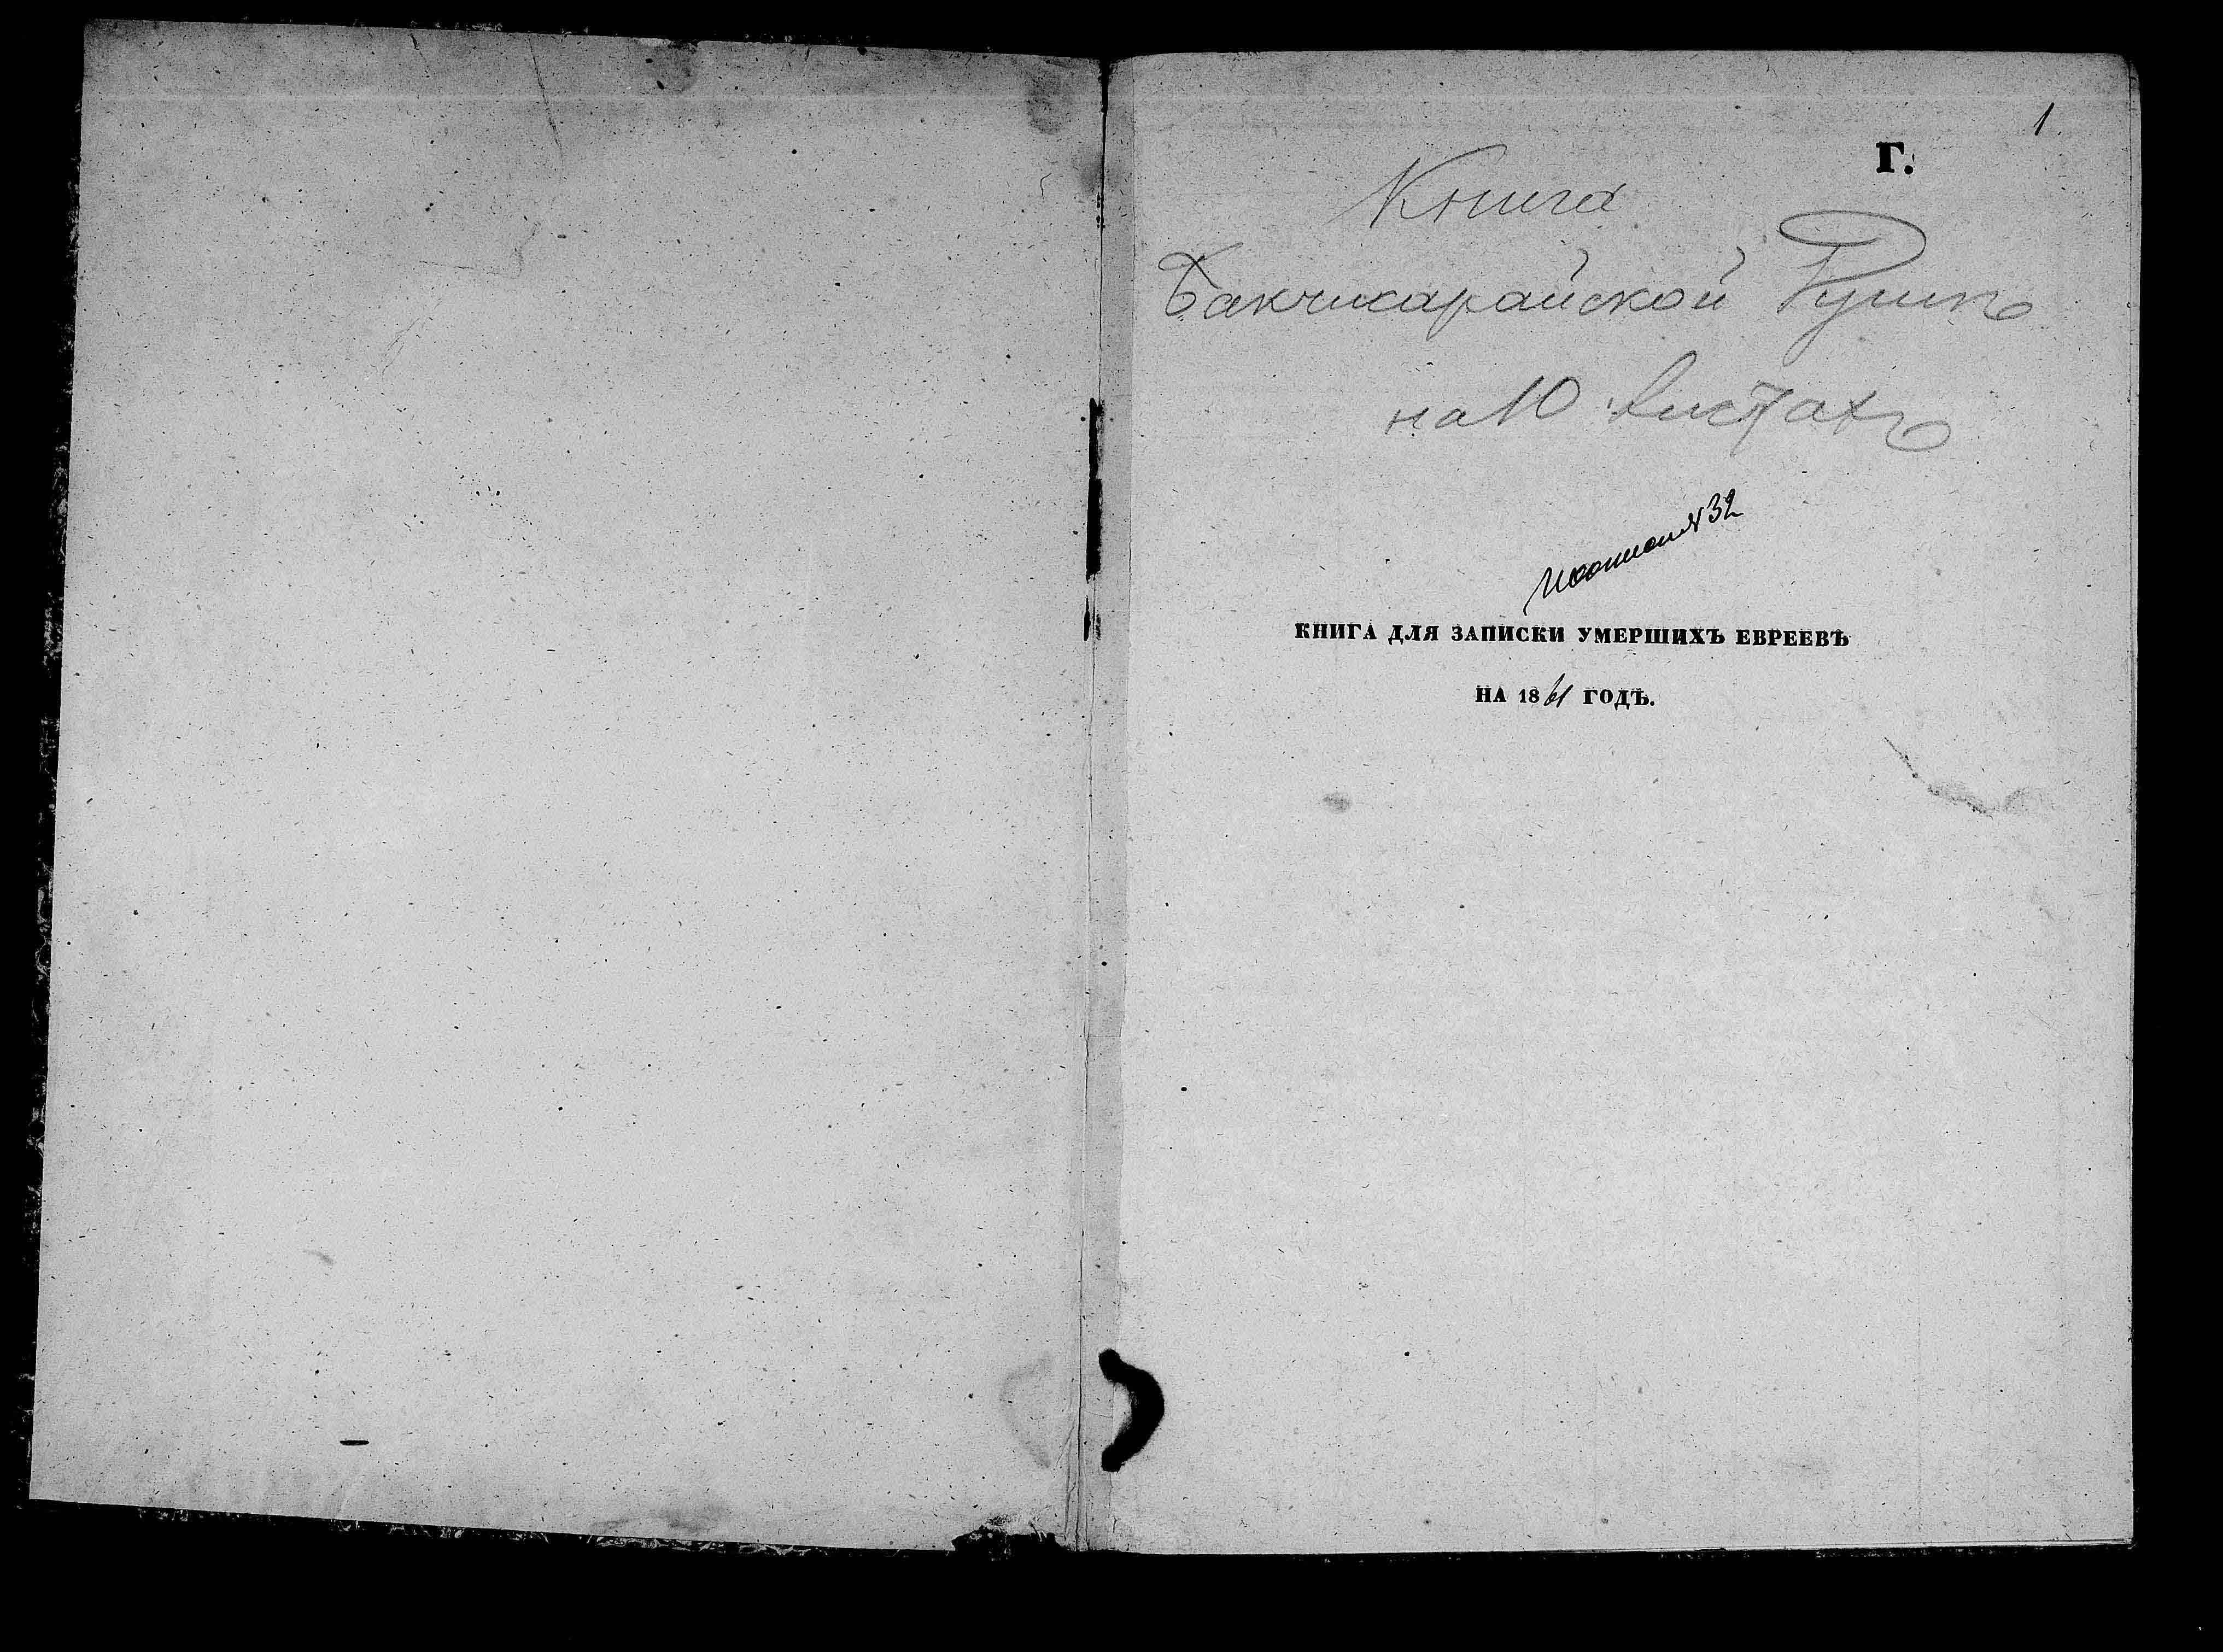 1.
Г.
Книга
Бакчисарайской Думы
на 10 листахъ
№ 32
КНИГА ДЛЯ ЗАПИСКИ УМЕРШИХЪ ЕВРЕЕВЪ
НА 1861 ГОДЪ.